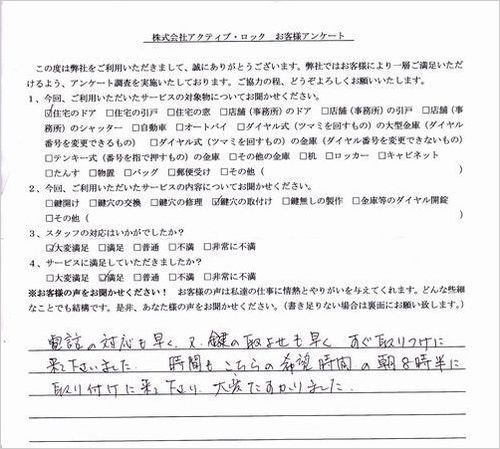 株式会社アクティブ・ロック　お客様アンケート
この度は弊社をご利用いただきまして、誠にありがとうございます。弊社ではお客様により一層ご満足いただ
けるよう、アンケート調査を実施いたしております。ご協力の程、どうぞよろしくお願いいたします。
1、今回、ご利用いただいたサービスの対象物についてお聞かせください。
☑住宅のドア　□住宅の引戸　□住宅の窓　□店舗（事務所）のドア　□店舗（事務所）の引戸　□店舗（事
務所）のシャッター　□自動車　□オートバイ　□ダイヤル式（ツマミを回すもの）の大型金庫（ダイヤル
番号を変更できるもの）　□ダイヤル式（ツマミを回すもの）の金庫（ダイヤル番号を変更できないもの）
□テンキー式（番号を指で押すもの）の金庫　□その他の金庫　□机　□ロッカー　□キャビネット
□たんす　□物置　□バッグ　□郵便受け　□その他（　　　　　　　　　　）
2、今回、ご利用いただいたサービスの内容についてお聞かせください。
□鍵開け　□鍵穴の交換　□鍵穴の修理　☑鍵穴の取付け　□鍵無しの製作　□金庫等のダイヤル開錠
□その他（　　　　　　　　　　）
3、スタッフの対応はいかがでしたか？
☑大変満足　□満足　□普通　□不満　□非常に不満
4、サービスに満足していただきましたか？
□大変満足　☑満足　□普通　□不満　□非常に不満
※お客様の声をお聞かせください！　お客様の声は私達の仕事に情熱とやりがいを与えてくれます。どんな些細
なことでも結構です。是非、あなた様の声をお聞かせください。（書き足りない場合は裏面にお願い致します。）
電話の対応も早く、又、鍵の取よせも早く　すぐ取りつけに
来て下さいました。　時間もこちらの希望時間の朝8時半に
取り付けに来て下さり、大変たすかりました。